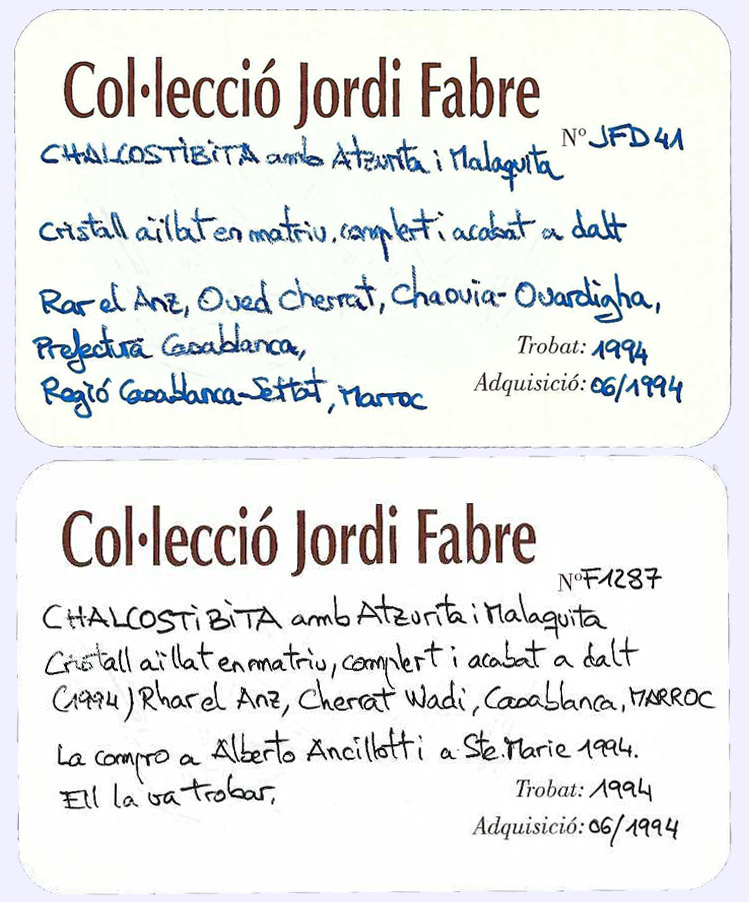 Col·lecció Jordi Fabre
Nº JFD41
CHALCOSTIBITA amb Atzurita i Malaquita
Cristall aïllat en matriu, complert i acabat a dalt
Rar el Anz, Oued Cherrat, Chaouia-Ouardigha,
Prefectura Casablanca,
Trobat: 1994
Regió Casablanca-Settat, Marroc
Adquisició: 06/1994
Col·lecció Jordi Fabre
Nº F1287
CHALCOSTIBITA amb Atzurita i Malaquita
Cristall aïllat en matriu, complert i acabat a dalt
(1994) Rhar el Anz, Cherrat Wadi, Casablanca, MARROC
La compro a Alberto Ancillotti a Ste. Marie 1994.
Ell la va trobar.
Trobat: 1994
Adquisició: 06/1994